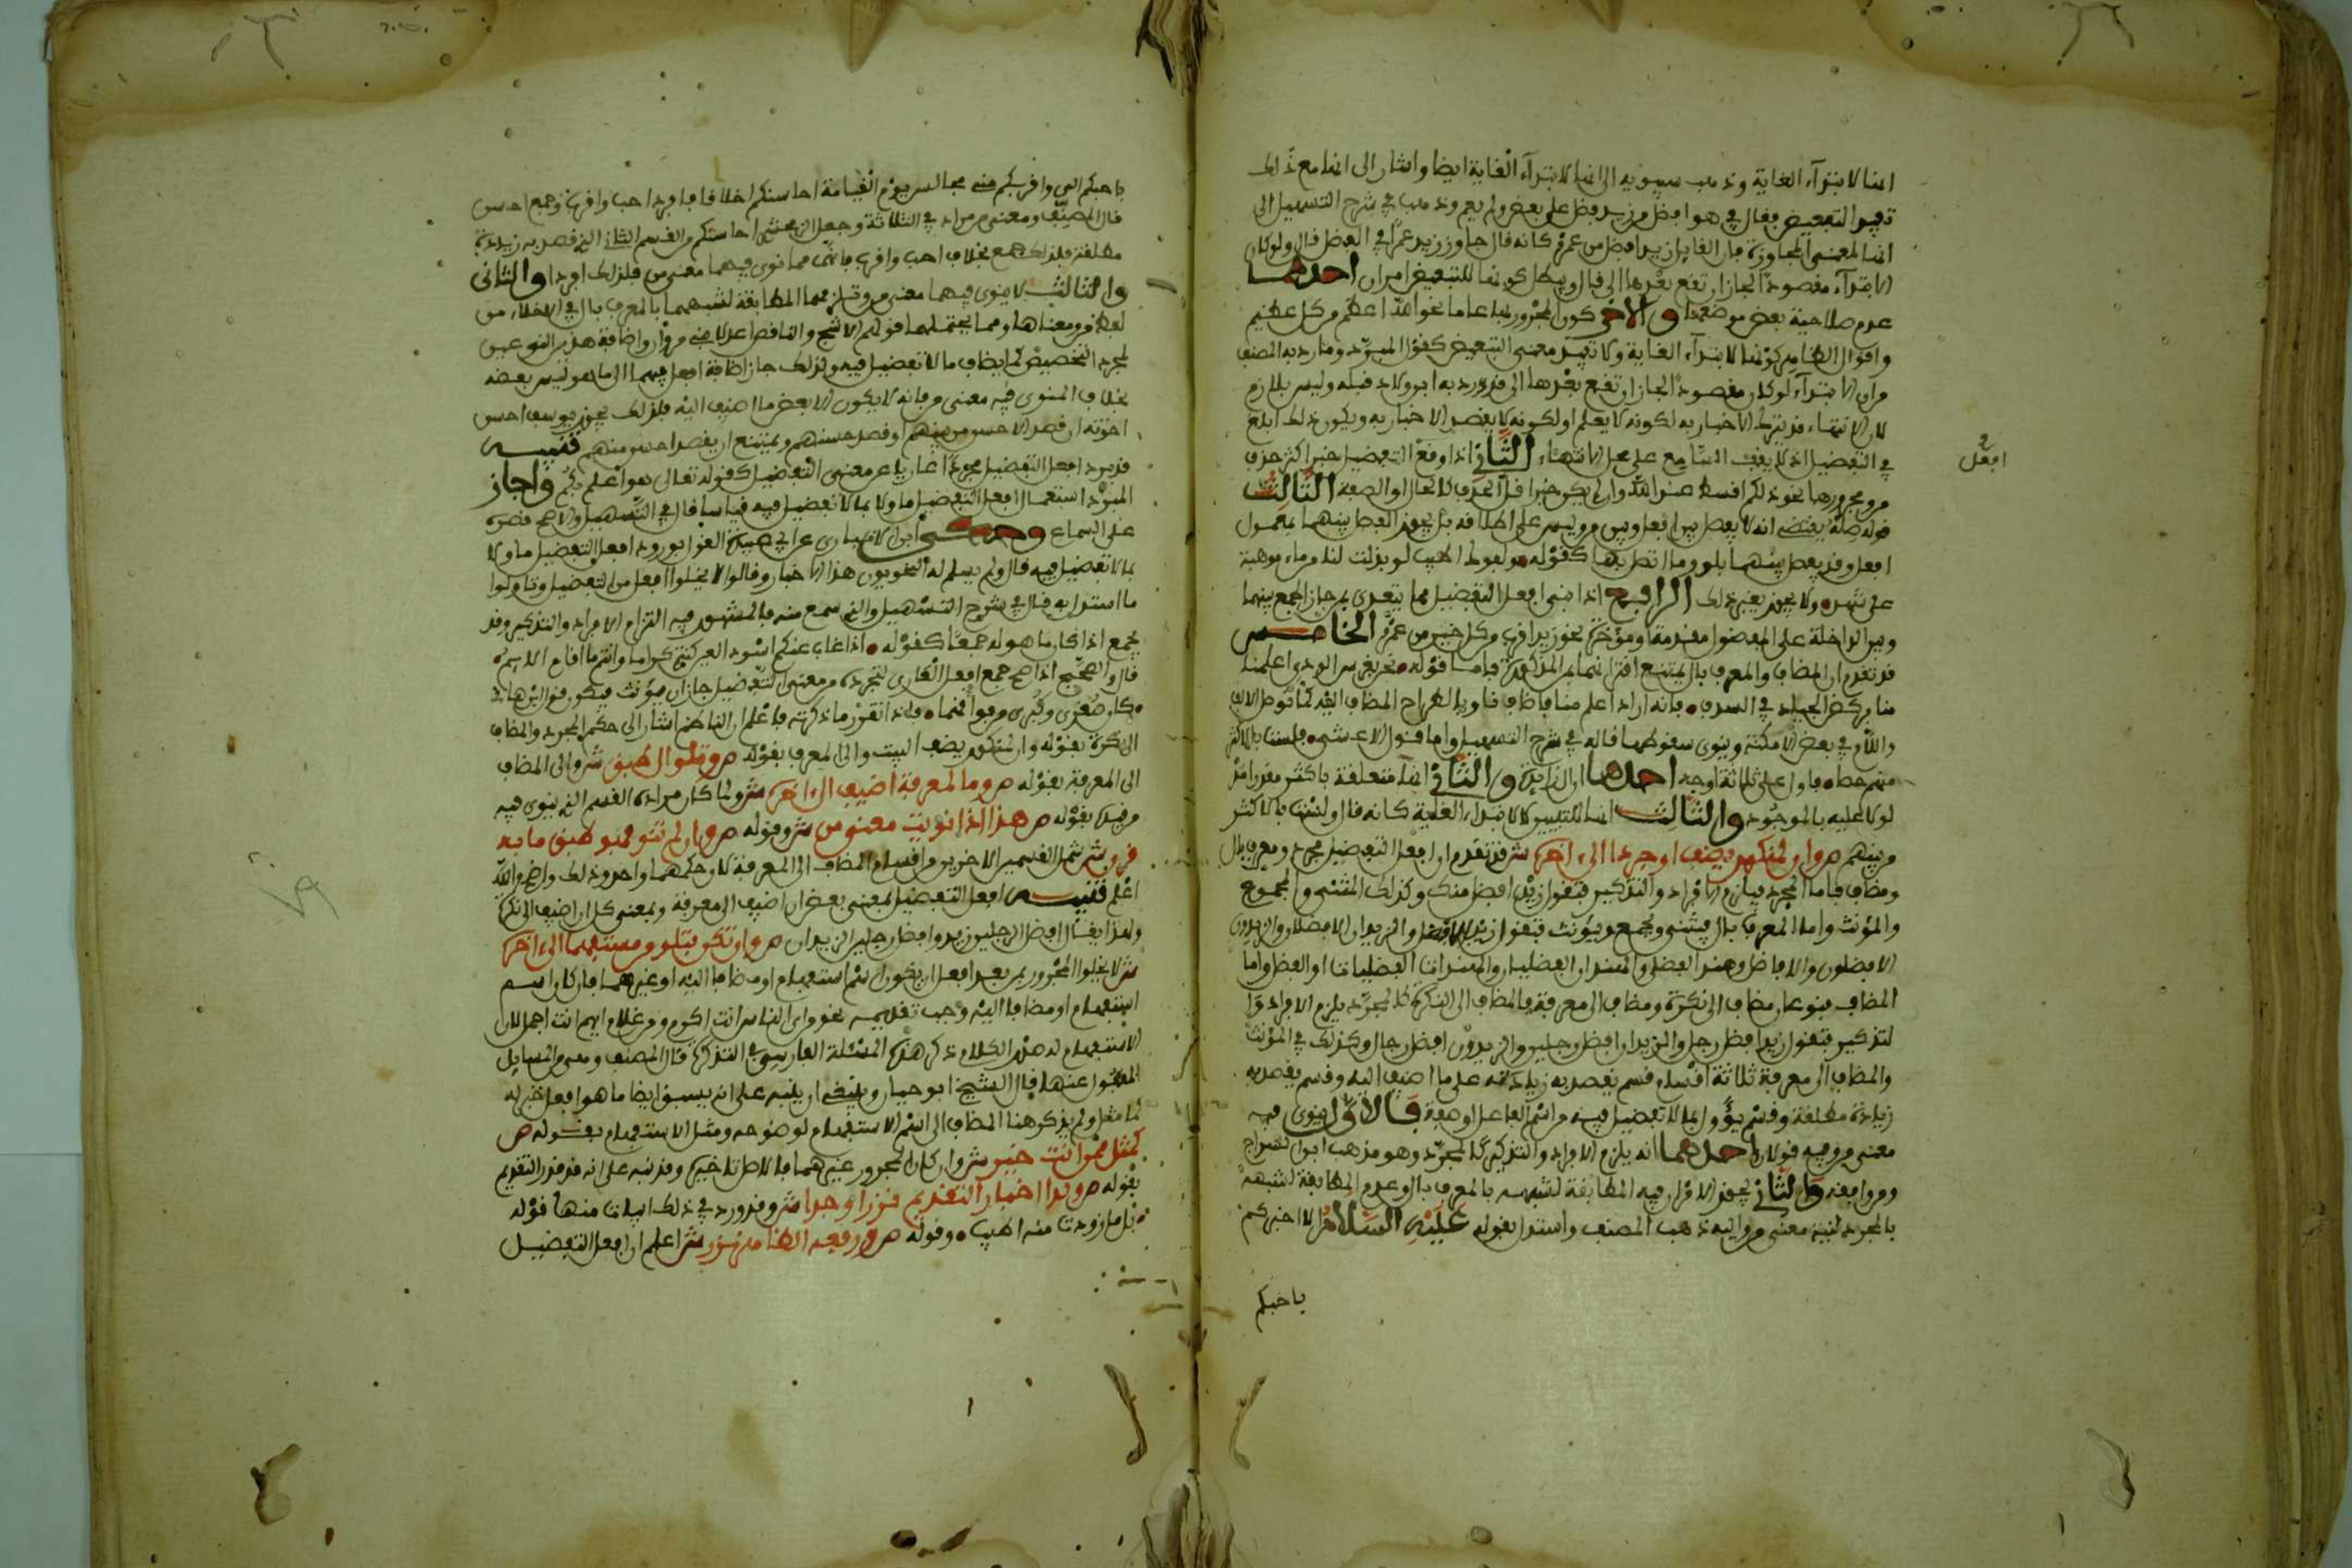 انها لابتداء الغاية وذهب سيبويه الى انها لابتداء الغاية ايضا واشار الى انها مع ذلك
تفيد التبعيض فقال في هو افضل من زيد فضله على بعض ولم يعم وذهب في شرح التسهيل الى
انها لمعنى المجاوزة فان القايل زيد افضل من عمرو كانه قال جاوز زيد عمرا في الفضل قال ولو كان
الابتداء مقصودا لجاز ان تقع بعدها الى قال ويبطل كونها للتبعيض امران احدهما
عدم صلاحية بعض موضعها والاخر كون المجرور بها عاما نحو الله اعظم من كل عظيم
واقول الظاهر كونها لابتداء الغاية ولا تفيد معنى التبعيض كقول المبرد وما رد به المصنف
من ان الابتداء لو كان مقصودا لجاز ان تقع بعدها الى قد رد به ابن ولاد قبله وليس بلازم
لان الانتهاء قد يترك الاخبار به لكونه لا يعلم او لكونه لا يقصد الاخبار به ويكون ذلك ابلغ
في التفضيل اذ لا يقف السامع على محل الانتهاء الثاني اذا وقع التفضيل خبرا كثر حذف
من ومجرورها نحو ذلكم اقسط عند الله وان لم يكن خبرا قل الحذف كالحال او الصفة الثالث
قوله صله يقتضي انه لا يفصل بين افعل وبين من وليس على اطلاقه بل يجوز الفصل بينهما بمعمول
افعل وقد يفصل بينهما بلو وما اتصل بها كقوله ولفوك اطيب لو بذلت لنا من ماء موهبة
على شهد ولا يجوز بغير ذلك الرابع اذا بني افعل التفضيل مما يتعدى بمن جاز الجمع بينها
وبين الداخلة على المفضول مقدمة او موخرة نحو زيد اقرب من كل خير من عمرو الخامس
قد تقدم ان المضاف والمعرف بال يمتنع اقترانهما بمن المذكورة فاما قوله نحن بغرس الودي اعلمنا
منا بركض الجياد في السدف فانه اراد اعلم منا فاضاف ناويا اطراح المضاف اليه كما تدخل الالف
واللام في بعض الامكنة وينوى سقوطهما قاله في شرح التسهيل واما قول الاعشى ولست بالاكثر
منهم حصا فاول على ثلاثة اوجه احدها ان ال زايدة والثاني انها متعلقة باكثر مقدرا مد
لولا عليه بالموجود والثالث انها للتبيين لا لابتداء الغاية كانه قال ولست بالاكثر
من بينهم ص وان لمنكور يضف او جردا الى اخره ش قد تقدم ان افعل التفضيل مجرد ومعرف بال
ومضاف فاما المجرد فيلزم الافراد والتذكير فتقول زيد افضل منك وكذلك المثنى والمجموع
والمؤنث واما المعرف بال فيثنى ويجمع ويؤنث فتقول زيد الافضل والزيدان الافضلان والزيدون
الافضلون والافاضل وهند الفضلى والهندان الفضليان والهندات الفضليات او الفضل واما
المضاف فنوعان مضاف الى نكرة ومضاف الى معرفة فالمضاف الى النكرة كالمجرد يلزم الافراد وا
لتذكير فتقول زيد افضل رجل والزيدان افضل رجلين والزيدون افضل رجال وكذلك في المؤنث
والمضاف الى معرفة ثلاثة اقسام قسم يقصد به زيادته على ما اضيف اليه وقسم يقصد به
زيادة مطلقة وقسم يؤول بما لا تفضيل فيه من اسم الفاعل او صفة فالاول ينوى فيه
معنى من وفيه قولان احدهما انه يلزم الافراد والتذكير كالمجرد وهو مذهب ابن السراج
ومن وافقه والثاني يجوز الافراد فيه المطابقة لشبهه بالمعرف بال وعدم المطابقة لشبهه
بالمجرد لنية معنى من واليه ذهب المصنف واستدل بقوله عليه السلام الا اخبركم
باحبكم
افعل
باحبكم الي واقربكم مني مجالس يوم القيامة احاسنكم اخلاقا فافرد احب واقرب وجمع احسن
قال المصنف ومعنى من مراد في الثلاثة وجعل الزمخشري احاسنكم من القسم الثاني الذي قصد به زيادة
مطلقة فلذلك جمع بخلاف احب واقرب فانهما مما نوي فيهما معنى من فلذلك افردا والثاني
والثالث لا ينوى فيهما معنى من وتلزمهما المطابقة لشبههما بالمعرف بال في الاخلاء من
لفظ من ومعناها ومما يحتملهما قولهم الاشج والناقص اعدلا بني مروان واضافة هذين النوعين
لمجرد التخصيص كما يضاف ما لا تفضيل فيه ولذلك جاز اضافة افعل فيهما الى ما هو ليس بعضه
بخلاف المنوي فيه معنى من فانه لا يكون الا بعض ما اضيف اليه فلذلك يجوز يوسف احسن
اخوته ان قصد الاحسن من بينهم او قصد حسنهم ويمتنع ان يقصد احسن منهم تنبيه
قد يرد افعل التفضيل مجردا عاريا عن معنى التفضيل كقوله تعالى هو اعلم بكم واجاز
المبرد استعمال افعل التفضيل ماولا بما لا تفضيل فيه قياسا قال في التسهيل والاصح قصره
على السماع وحكى ابن الانباري عن ابي عبيدة القول بورود افعل التفضيل ماولا
بما لا تفضيل فيه قال ولم يسلم له النحويون هذا الاختيار وقالوا لا يخلو افعل من التفضيل وتاولوا
ما استدل به قال في شرح التسهيل والذي سمع منه فالمشهور فيه التزام الافراد والتذكير وقد
يجمع اذا كان ما هو له جمعا كقوله اذا غاب عنكم اسود العين كنتم كراما وانتم ما اقام الايم
قال واذا صح جمع افعل العاري لتجرده من معنى التفضيل جاز ان يؤنث فيكون قول ابن هانئ
كان صغرى وكبرى من فواقعها فاذا تقرر ما ذكرته فاعلم ان الناظم اشار الى حكم المجرد والمضاف
الى نكرة بقوله وان لمنكور يضف البيت والى المعرف بقوله ص وتلو ال طبق ش والى المضاف
الى المعرفة بقوله ص وما لمعرفة اضيف الى اخره ش ولما كان مراده القسم الذي ينوى فيه
من قيده بقوله ص هذا اذا نويت معنى من ش وقوله ص وان لم تنو فهو طبق ما به
قرن ش شمل القسمين الاخرين من اقسام المضاف الى المعرفة لان حكمهما واحد وذلك واضح والله
اعلم تنبيه افعل التفضيل بمعنى بعض ان اضيف الى معرفة وبمعنى كل ان اضيف الى نكرة
ولهذا يقال افضل الرجلين زيد وافضل رجلين الزيدان ص وان تكن بتلو من مستفهما الى اخره
ش لا يخلو المجرور بمن بعد افعل ان يكون اسم استفهام او مضافا اليه او غيرهما فان كان اسم
استفهام او مضافا اليه وجب تقديمه نحو من اي الناس انت اكرم ومن غلام ايهم انت اجمل لان
الاستفهام له صدر الكلام ذكر هذه المسئلة الفارسي في التذكرة قال المصنف وهي من المسايل
المغفول عنها قال الشيخ ابو حيان وينبغي ان ينبه على انه يسبق ايضا ما هو افعل خبر له
كما مثل ولم يذكر هنا المضاف الى اسم الاستفهام لوضوحه ومثل الاستفهام بقوله ص
كمثل ممن انت خير ش وان كان المجرور غيرهما فالاصل تاخيره وقد نبه على انه قد قدر التقديم
بقوله ص ولدى اخبار التقديم نزرا وجدا ش وقد ورد في ذلك ابيات منها قوله
بل ما زودت منه اطيب وقوله ص ورفعه الظاهر نزر ش اعلم ان افعل التفضيل